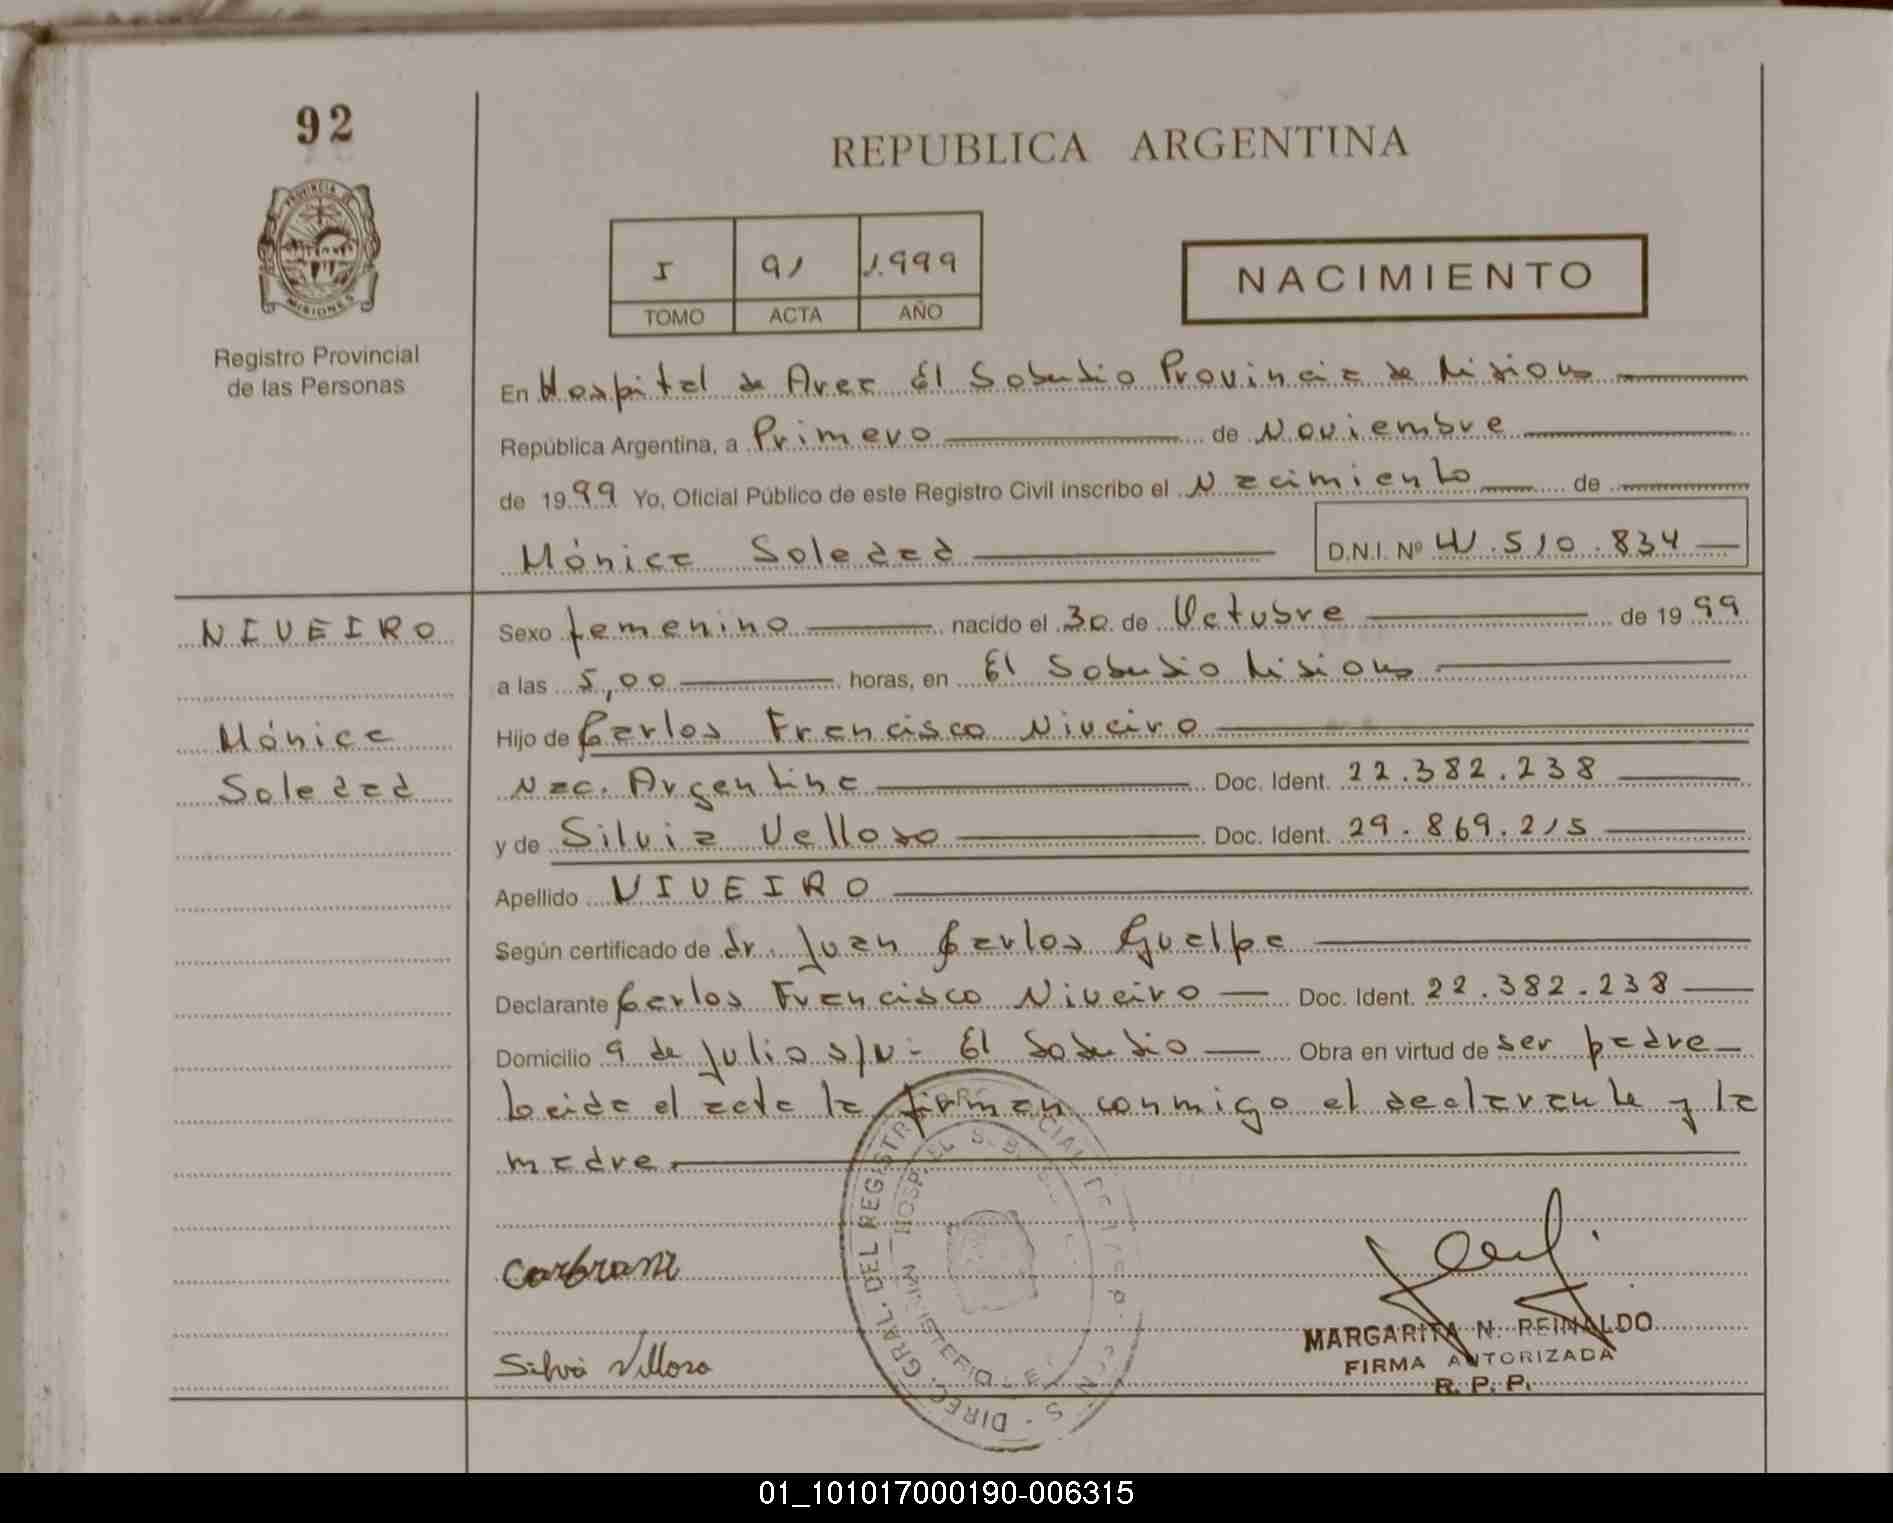 92
REPUBLICA ARGENTINA
PROVINCIA DE
MISIONES
Registro Provincial
de las Personas
I 91 1.999
TOMO ACTA AÑO
NACIMIENTO
En Hospital de Area El Soberbio Provincia de Misiones
República Argentina, a Primero de Noviembre
de 1999 Yo, Oficial Público de este Registro Civil inscribo el Nacimiento de
Mónica Soledad D.N.I. Nº 41.510.834
NIVEIRO
Mónica
Soledad
Sexo femenino nacido el 30 de Octubre de 1999
a las 5,00 horas, en El Soberbio Misiones
Hijo de Carlos Francisco Niveiro
Nac. Argentina Doc. Ident. 22.382.238
y de Silvia Velloso Doc. Ident. 29.869.215
Apellido NIVEIRO
Según certificado de dr. Juan Carlos Guelpa
Declarante Carlos Francisco Niveiro Doc. Ident. 22.382.238
Domicilio 9 de Julio s/n - El Soberbio Obra en virtud de ser padre
Leida el acta la firman conmigo el declarante y la
madre
Silvia Villoso
MARGARITA N. REINALDO
FIRMA AUTORIZADA
R. P. P.
DIREC. GRAL. DEL REGISTR
MINISTERIO
01_101017000190-006315